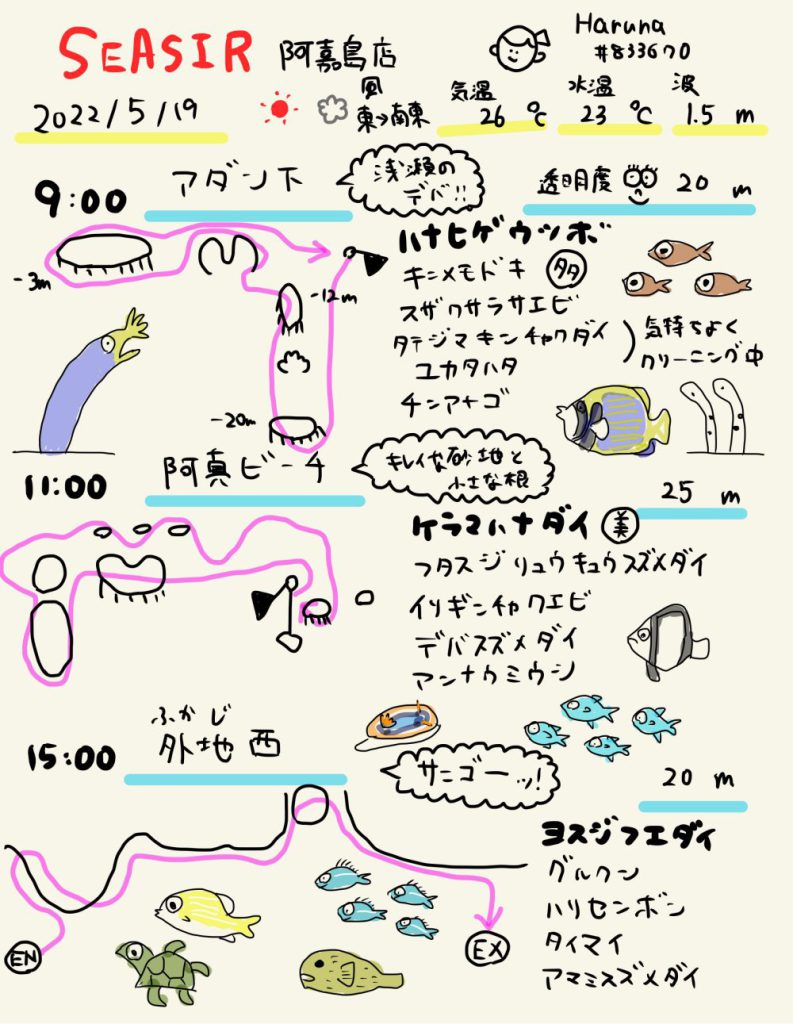 SEASIR 阿嘉島店
Haruna
#833670
2022/5/19
風
東→南東
気温
26 ℃
水温
23 ℃
波
1.5 m
9:00 アダン下
浅瀬の
デバ!!
透明度 20 m
-3m
-12m
-20m
ハナヒゲウツボ
キンメモドキ 多
スザクサラサエビ
タテジマキンチャクダイ
ユカタハタ
気持ちよく
クリーニング中
チンアナゴ
11:00 阿真ビーチ
キレイな砂地と
小さな根
25 m
ケラマハナダイ 美
フタスジリュウキュウスズメダイ
イソギンチャクエビ
デバスズメダイ
アンナウミウシ
ふかじ
15:00 外地西
サンゴーッ!
20 m
ヨスジフエダイ
グルクン
ハリセンボン
タイマイ
アマミスズメダイ
EN
EX